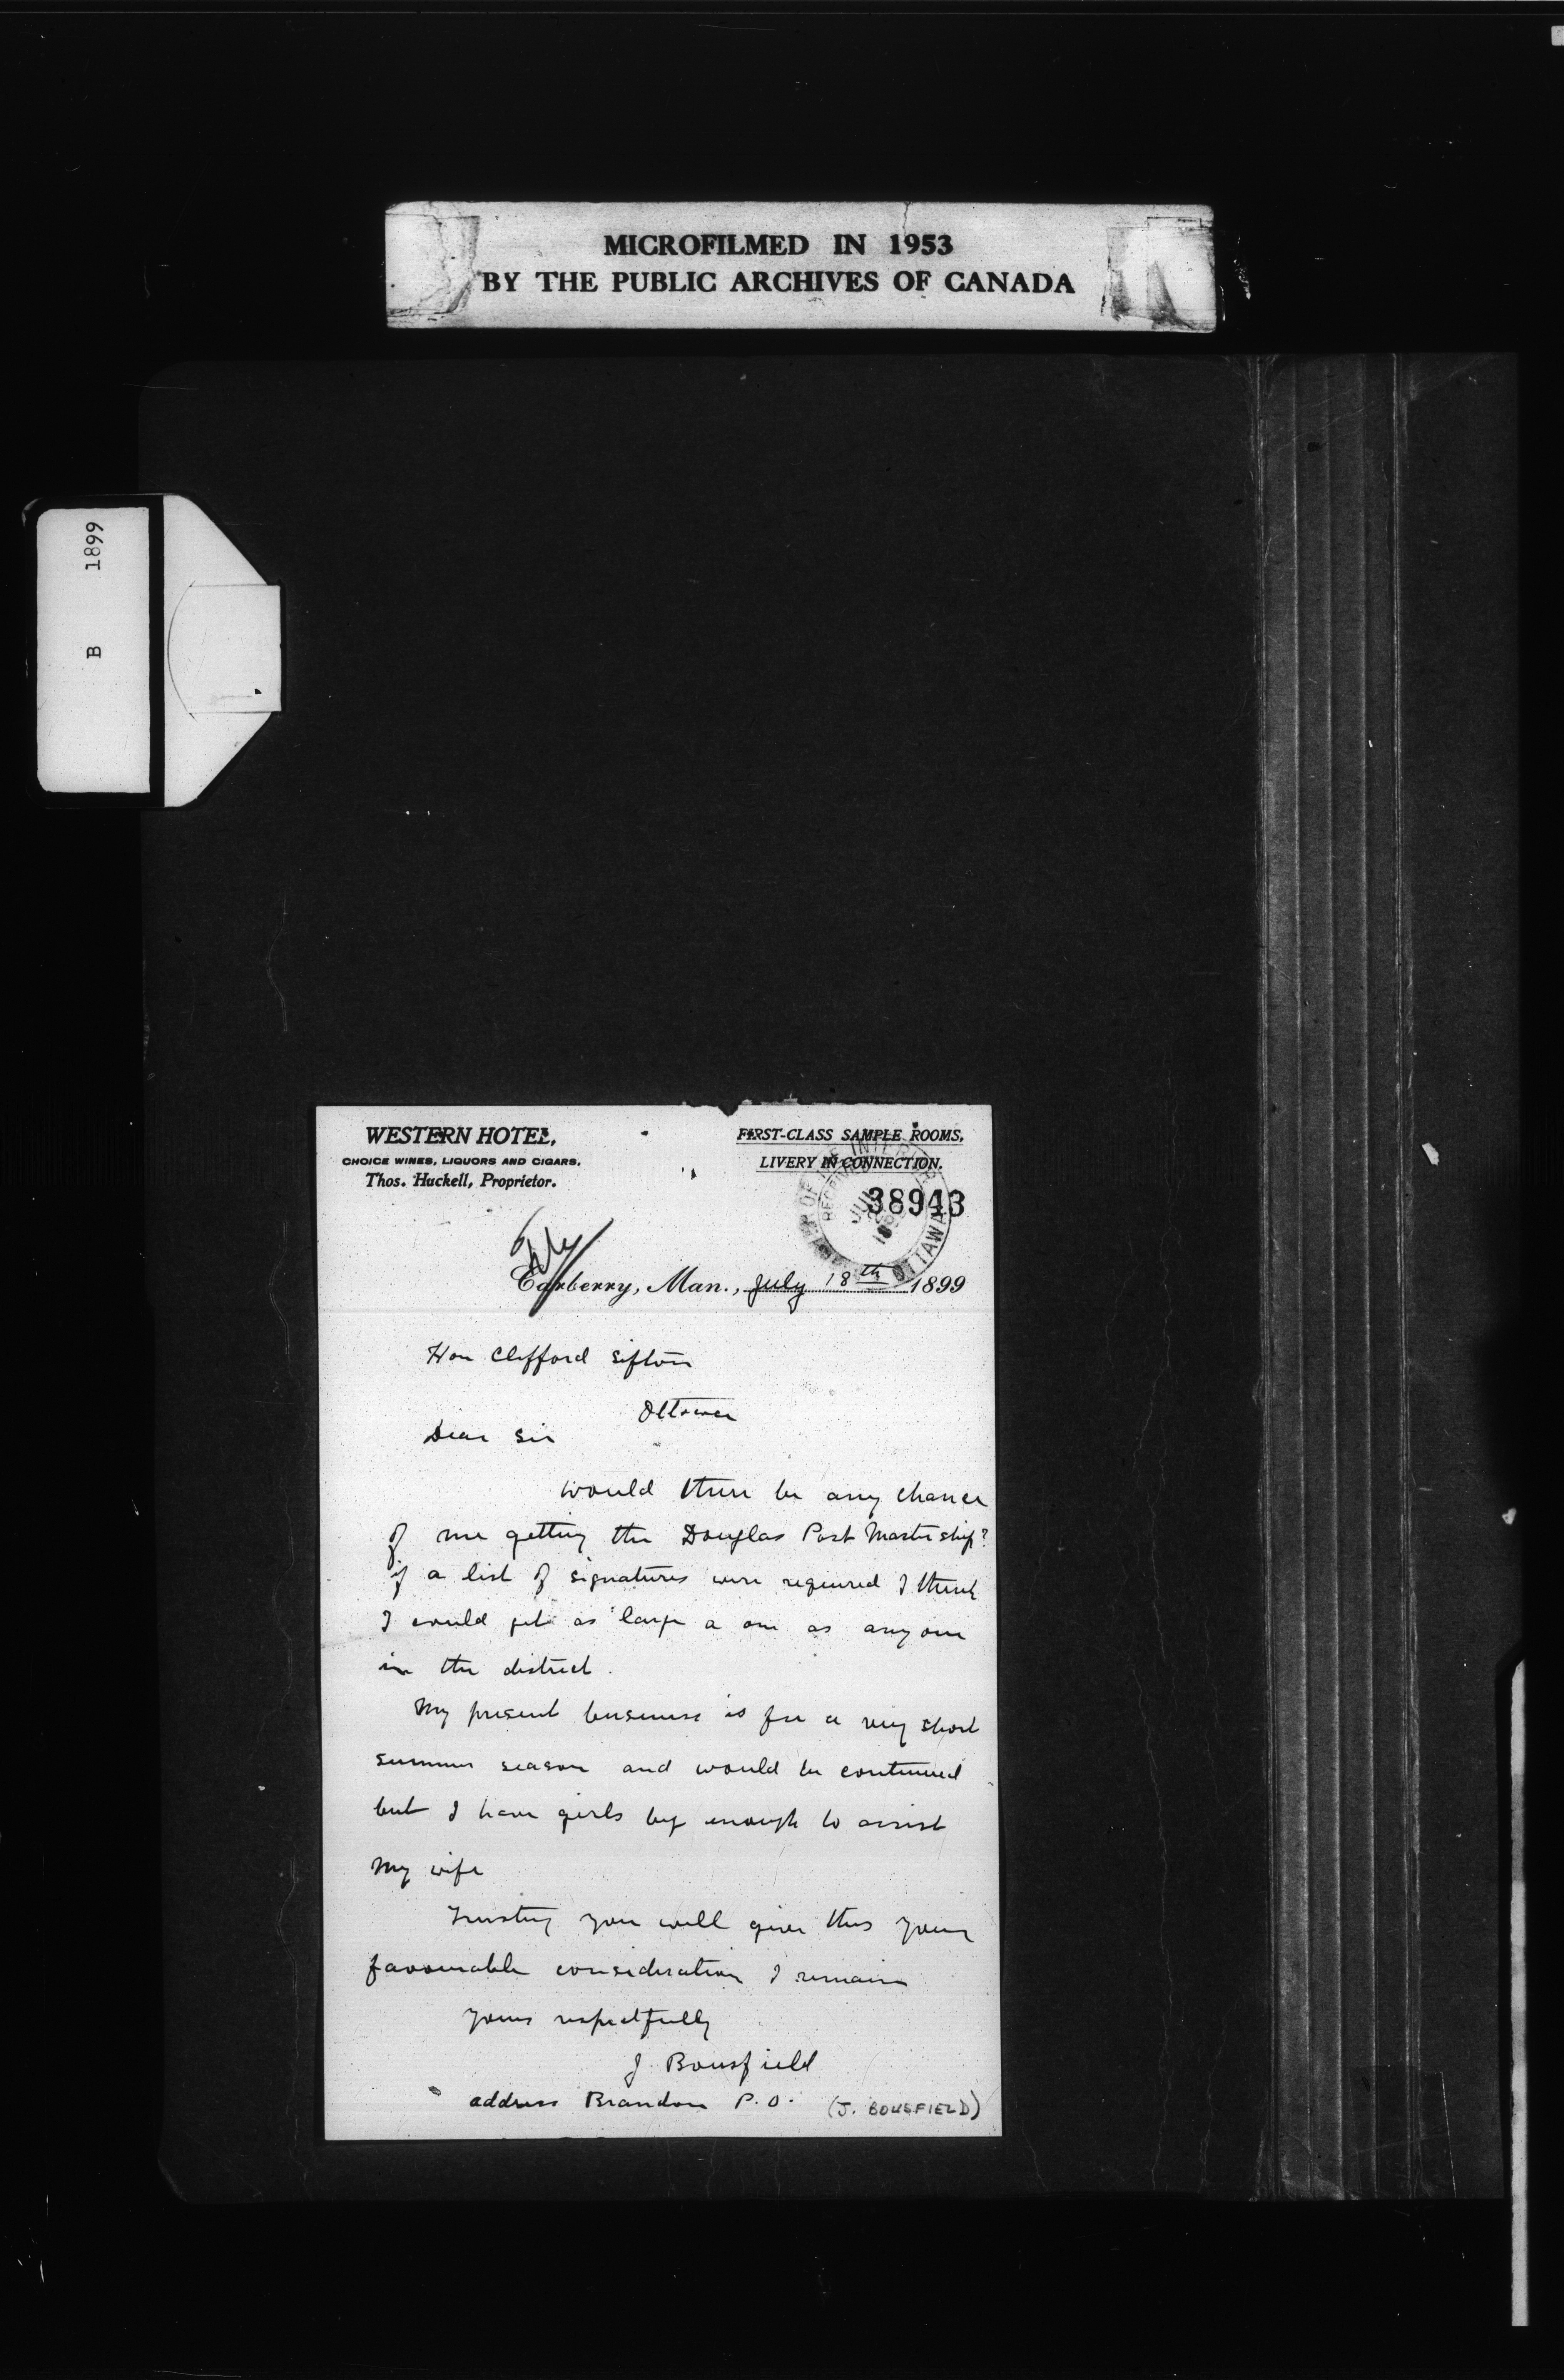 MICROFILMED IN 1953
BY THE PUBLIC ARCHIVES OF CANADA
B 1899
WESTERN HOTEL,
CHOICE WINES, LIQUORS AND CIGARS.
Thos. Huckell, Proprietor.
FIRST-CLASS SAMPLE ROOMS.
LIVERY IN CONNECTION.
38943
OTTAWA
Carberry, Man., July 18th 1899
Hon Clifford Sifton
Ottawa
Dear Sir
Would there be any chance
of me getting the Douglas Post Mastership?
if a list of signatures were required I think
I could get as large a one as anyone
in the district.
My present business is for a very short
summer season and would be continued
but I have girls big enough to assist
my wife
Trusting you will give this your
favourable consideration I remain
yours respectfully
J Bousfield
address Brandon P.O. (J. BOUSFIELD)